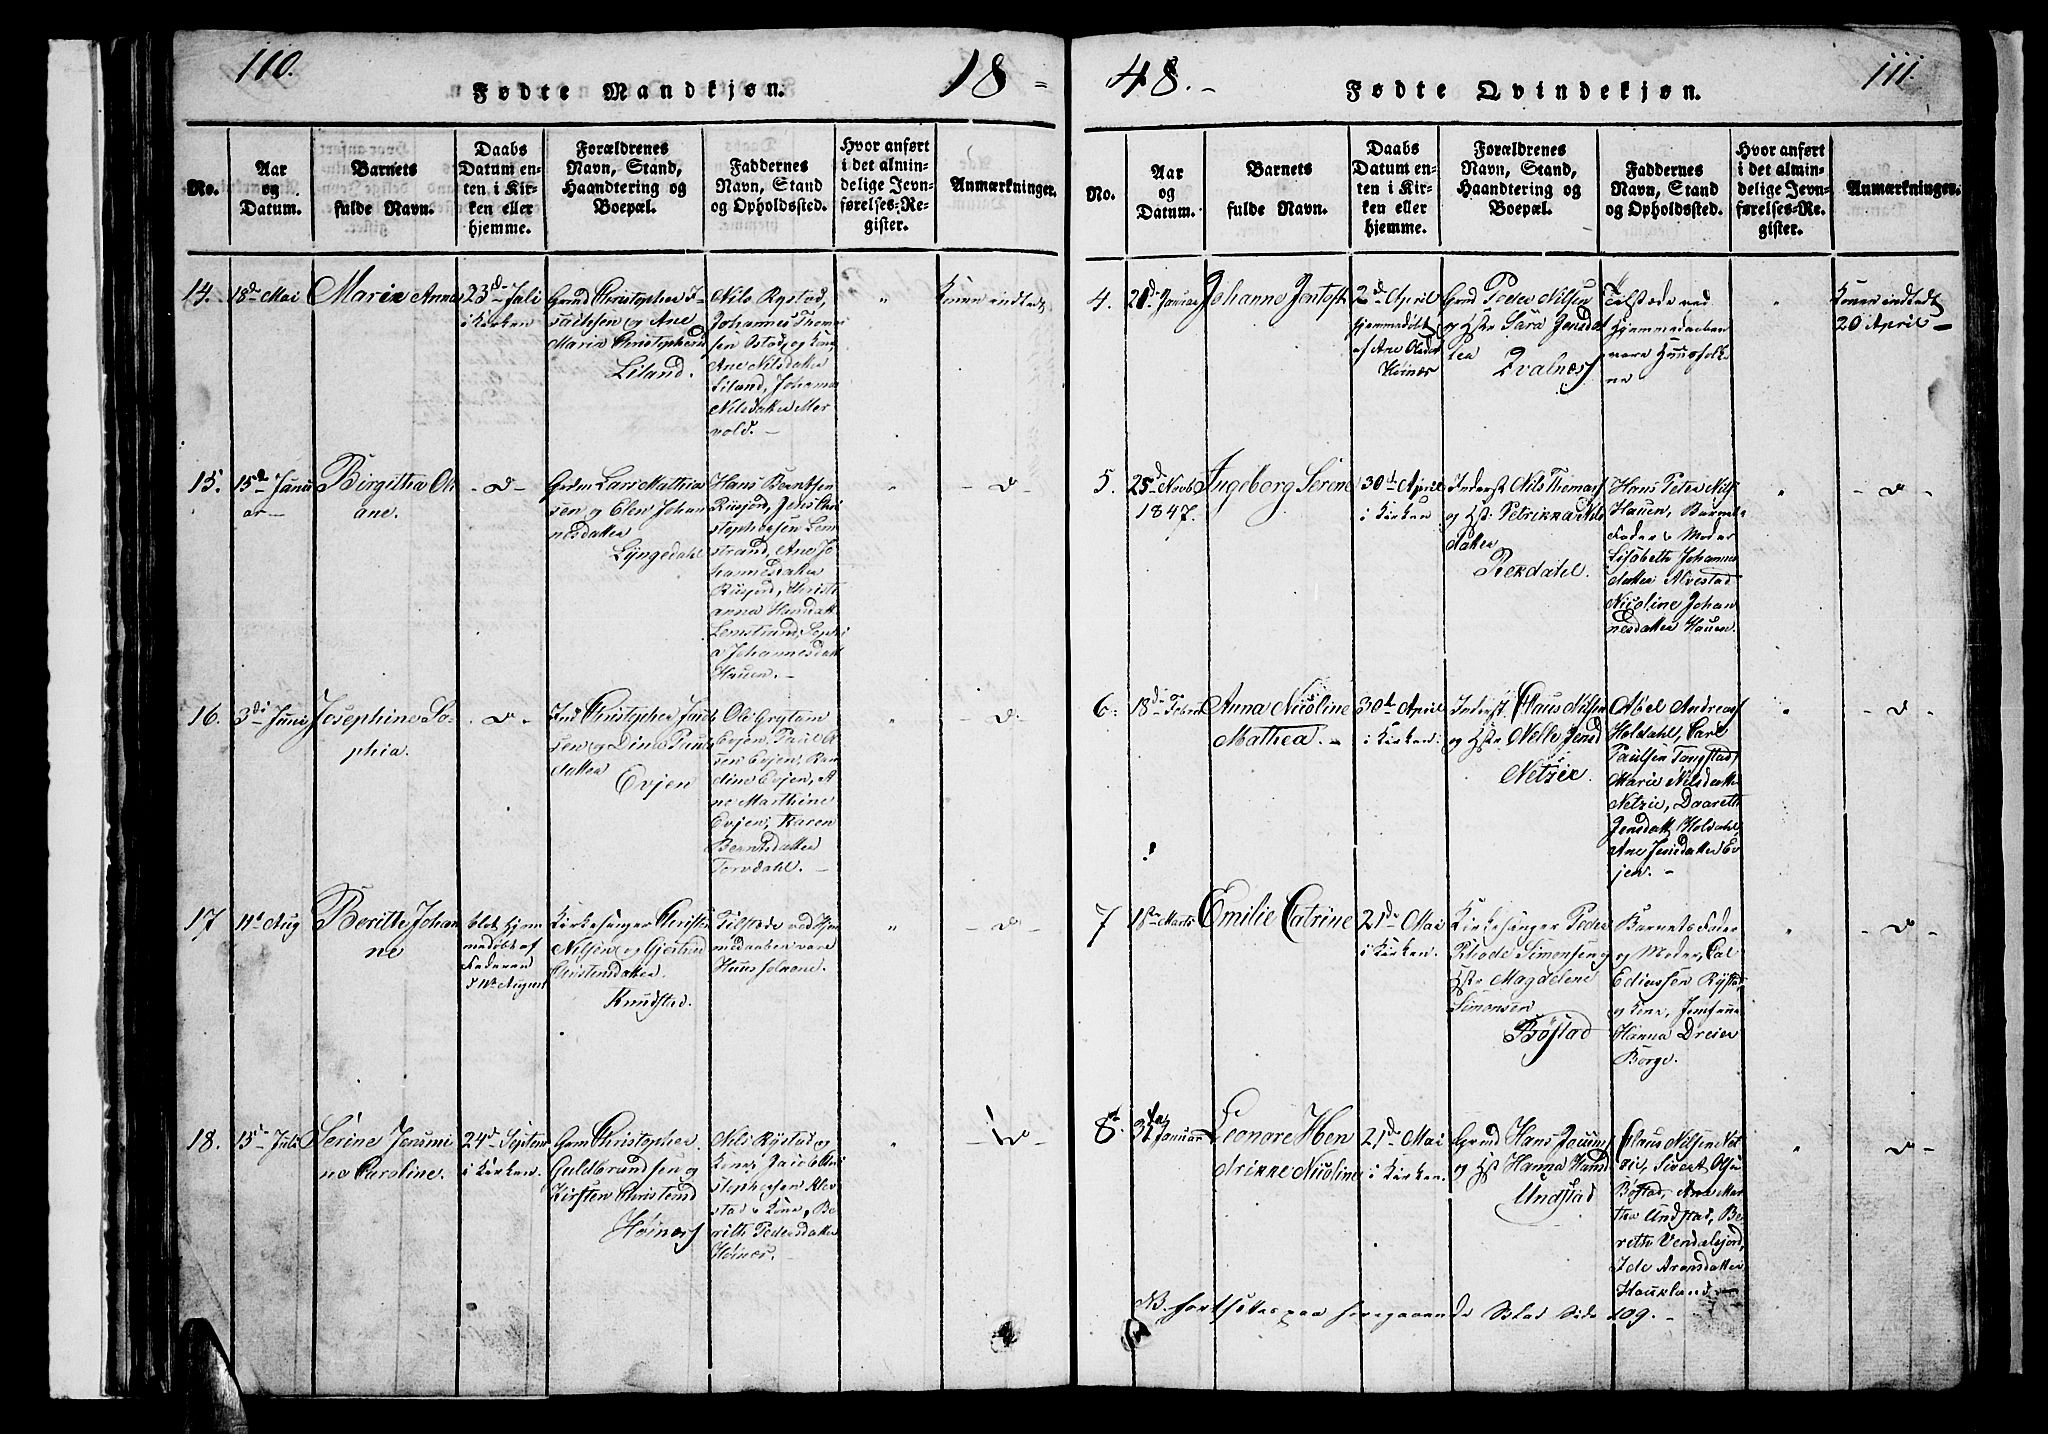 110.
18 =
Fødte Mandkjøn.
No.
Aar
og
Datum.
Barnets
fulde Navn.
Daabs
Datum en-
ten i Kir-
ken eller
hjemme.
Forældrenes
Navn, Stand,
Haandtering og
Boepæl.
Faddernes
Navn, Stand
og Opholdssted.
Hvor anført
i det almin-
delige Jevn-
førelses-Re-
gister.
Anmærkninger.
14.
18de Mai
Marie Anna
23de Juli
i Kirken
Christopher
og Ane
Marie
Liland.
Nils Rystad,
Johannes Thom
Ane Nilsdatter
Liland, Johanna
Nilsdatter Mer
vold. -
"
Konen indledt
15.
15de Janu
ar -
Birgitha Oli
ane.
- d -
Lars Mathia
sen og Elen Johan
nesdatter
Lyngedahl
Hans Berntsen
Rüsjord, Jens Chri
stophersen Lem
strand, Ane Jo
hannesdatter
Rüsjord, Christi
anna Hansdatt
Lemstrand, Sophi
a Johannesdatt
Hauen. -
"
- d -
16.
3die Janu
Josephine So-
phia.
- d -
Christopher
sen og Dina Pauls
datter
Evjen
Ole Grytem
Evjen, Paul
Evjen, Ran
dine Evjen, A
ne Marthine
Evjen, Karen
Berntsdatter
Torvdahl. -
"
- d -
17
11te Aug
Berithe Johan
ne
blot hjem
medøbt af
Faderen
d 11te August
Kirkesanger Christen
Nilsen og Gjertrud
Christensdatter
Knudstad.
Tilstæde ved Hjem
medaaben vare
Huusfolkene.
"
- d -
18.
15de Juli
Serine Jensmi
ne Caroline.
24de Septem
i Kirken.
Christopher
Guldbrandsen og
Kirsten Christensd
Høinæs
Nils Rystad og
Kone, Jacob Chri
stophersen Alve
stad & Kone, Be
rith Pedersdatter
Høinæs. -
"
- d -
48. -
111.
Fødte Qvindekjøn.
No.
Aar
og
Datum.
Barnets
fulde Navn.
Daabs
Datum en-
ten i Kir-
ken eller
hjemme.
Forældrenes
Navn, Stand,
Haandtering og
Boepæl.
Faddernes
Navn, Stand
og Opholdssted.
Hvor anført
i det almin-
delige Jevn-
førelses-Re-
gister.
Anmærkninger.
4.
Januar
Johanne Jentoft
2den April
hjemmedøbt
af Ane Olsdat
Høinæs
Peder Nilsen
og Hstr Sara Jensdat
ter
Qvalnæs
Tilstæde ved
Hjemmedaaben
vare Huusfolke
ne
"
Konen indledt
20 April -
5.
25de Novb
1847.
Ingeborg Serene
30te April
i Kirken
Inderst Nils Thomas
og Hstr Petrikka Nils
datter
Rekdahl.
Hans Peter Nils
Hauen, Barnets
Fader & Moder
Lisabeth Johannes
datter Alvestad
Nicoline Johan
nesdatter Hauen.
"
- d -
6.
18de Febru
Anna Nicoline
Mathea. -
30te April
i Kirken.
Inderst Claus Nilsen
og Hstr Nelle Jensd
Netzie.
Abel Andreas
Holdahl, Carl
Paulsen Tangstad
Marie Nilsdatter
Netzie, Daareth
Jensdatt Holdahl,
Ane Jensdatter Ev
jen. -
- d -
7
18de Marts
Emilie Catrine
21de Mai
i Kirken.
Kirkesanger Peder
Rhode Simonsen og
Hstr Magdelene
Simonsen
Bøstad
Barnets Fader
og Moder,
Ediassen Rystad
og Kone, Jomfrue
Hanna Dreier
Borge.
"
- d -
8.
31te Januar
Leonore Hen
drikke Nicoline
21de Mai
i Kirken.
Hans
og Hstr Hanna Hansd
Undstad
Claus Nilsen Net
zie, Sivert Olsen
Bøstad, Ane Mar
tha Undstad, Be
rith Vendalsjord,
Ide Aronsdatter
Haukland -
"
- d -
NB. fortsættes paa foregaaende Blad Side 109. -